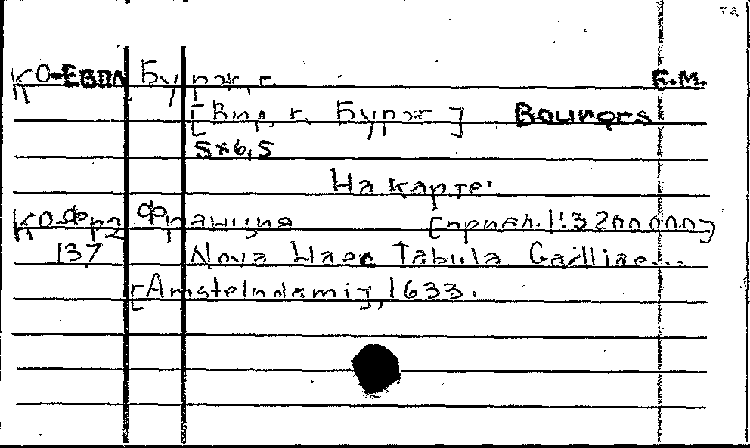 КО-Евпл Бурж, г. Е.М.
[Вид г. Бурж] Bourges
5х6,5
На карте:
КО Фр2 Франция [прибл. 1:3200000]
137 Nova Haec Tabula Galliae...
[Amstelodamij, 1633.